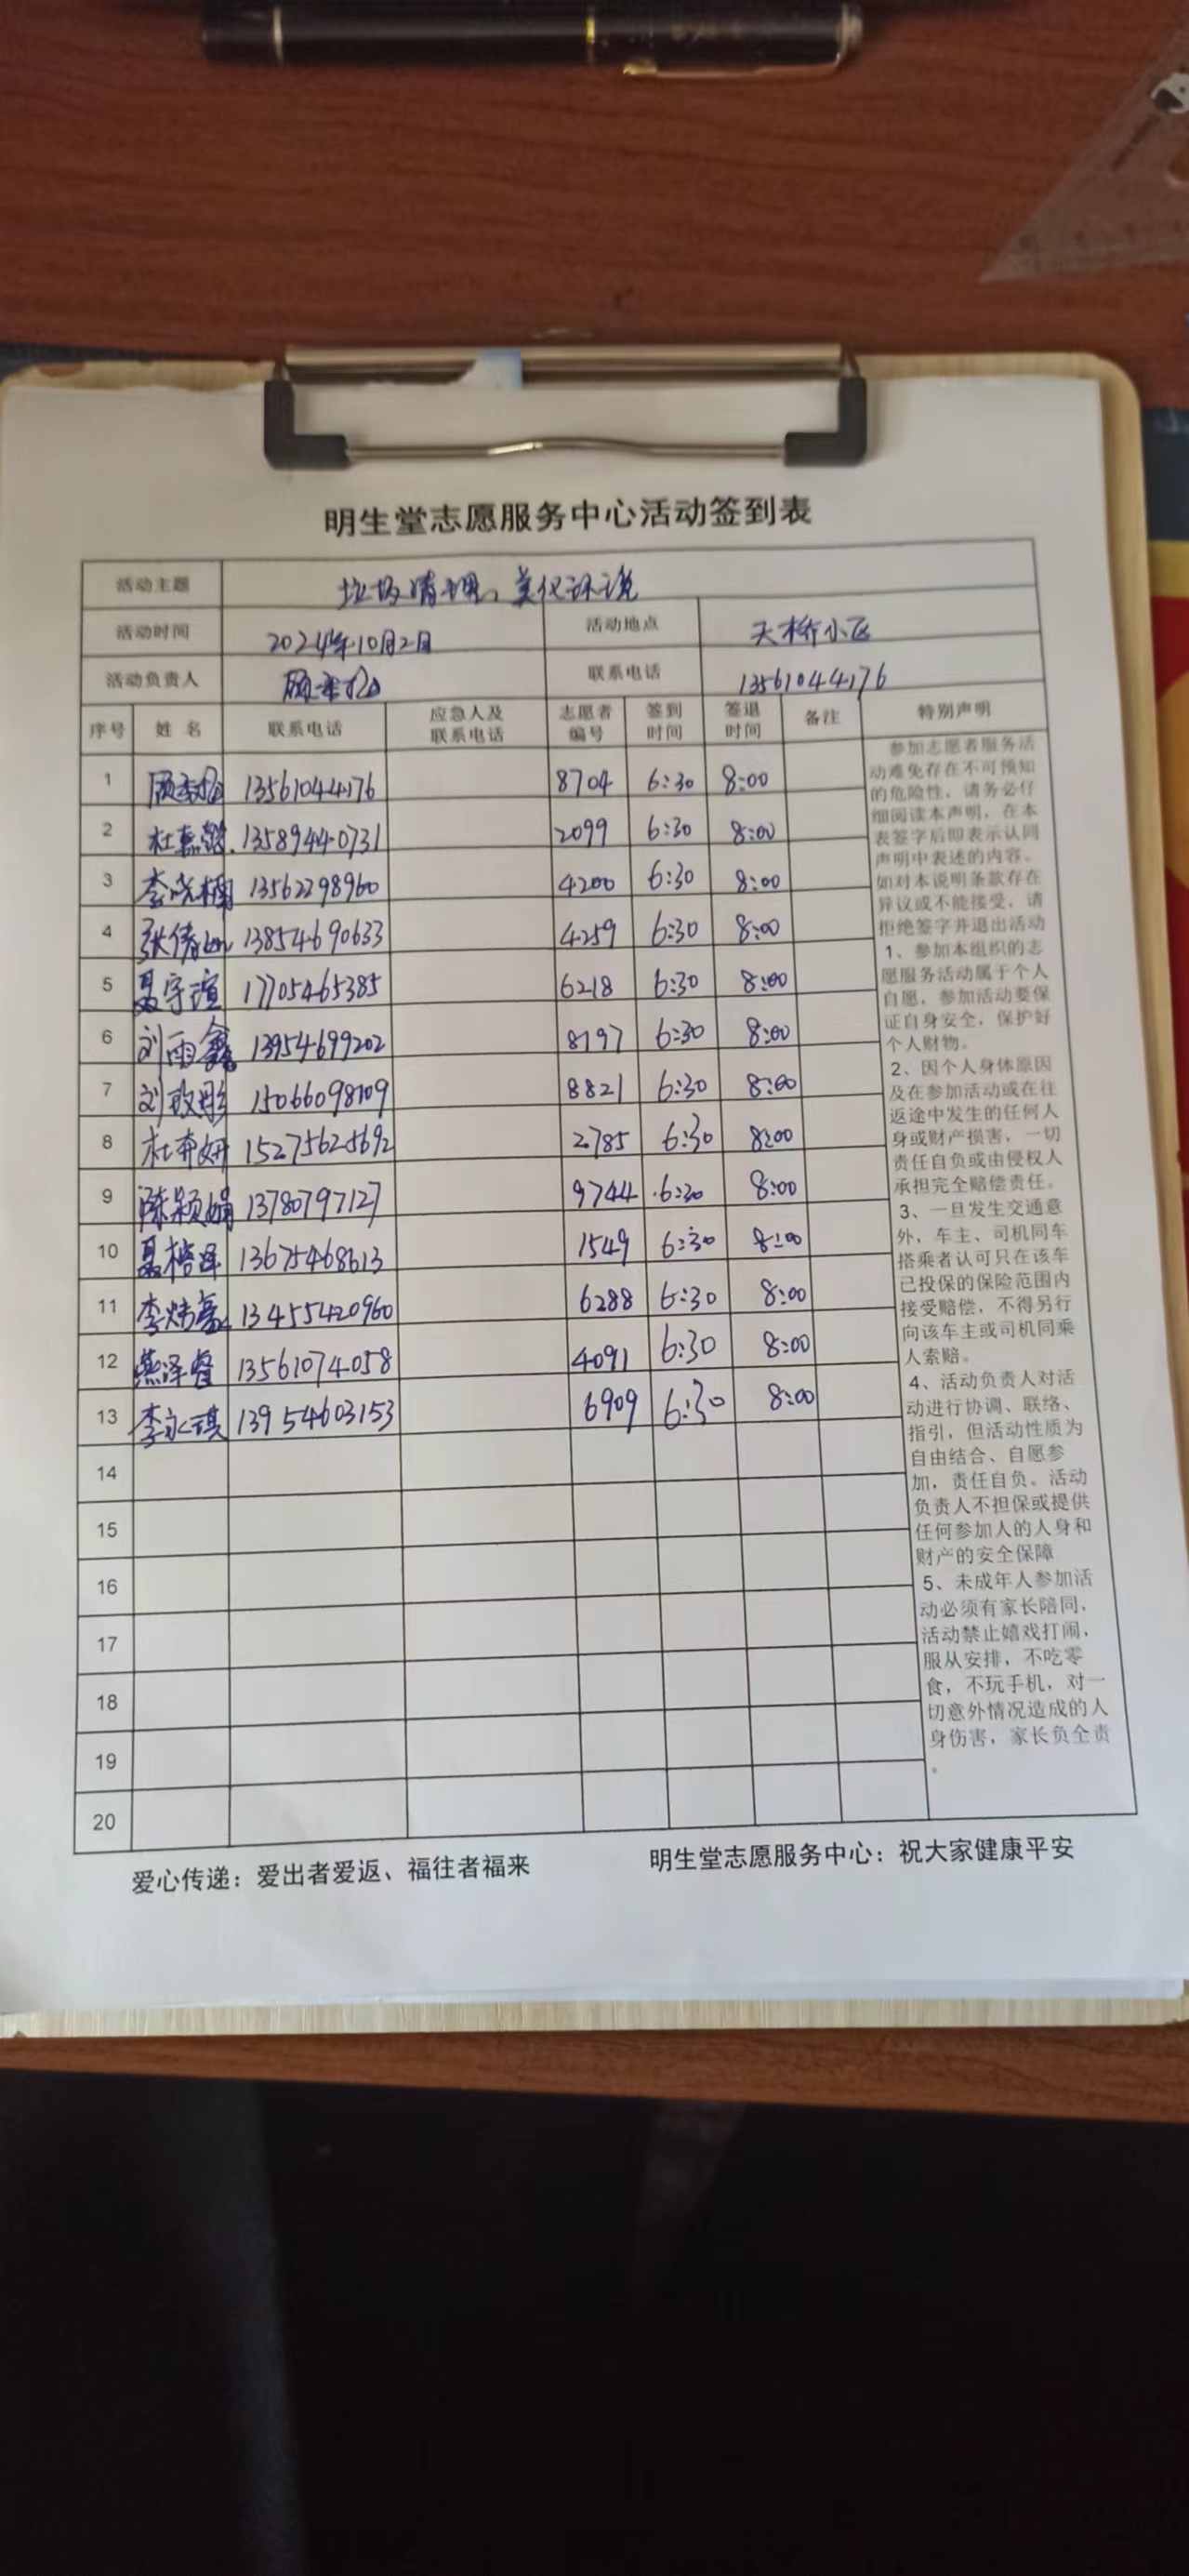 明生堂志愿服务中心活动签到表
活动主题 垃圾清理、美化环境
活动时间 2024年10月2日 活动地点 天桥小区
活动负责人 联系电话 13561044176
序号 姓名 联系电话 应急人及联系电话 志愿者编号 签到时间 签退时间 备注 特别声明
1 13561044176 8704 6:30 8:00
2 杜 13589440731 2099 6:30 8:00
3 李晓楠 13562298960 4200 6:30 8:00
4 张倩 13854690633 4259 6:30 8:00
5 聂宇瑄 17705465385 6218 6:30 8:00
6 刘雨鑫 13954699202 8197 6:30 8:00
7 刘政彤 15066098109 8821 6:30 8:00
8 杜奔妍 15275625692 2785 6:30 8:00
9 陈颖娟 13780797127 9744 6:30 8:00
10 聂 13675468613 1549 6:30 8:00
11 李炜 13455420960 6288 6:30 8:00
12 燕泽睿 13561074058 4091 6:30 8:00
13 李永琪 13954603153 6909 6:30 8:00
14
15
16
17
18
19
20
参加志愿者服务活
动难免存在不可预知
的危险性，请务必仔
细阅读本声明，在本
表签字后即表示认同
声明中表述的内容。
如对本说明条款存在
异议或不能接受，请
拒绝签字并退出活动
1、参加本组织的志
愿服务活动属于个人
自愿，参加活动要保
证自身安全，保护好
个人财物。
2、因个人身体原因
及在参加活动或在往
返途中发生的任何人
身或财产损害，一切
责任自负或由侵权人
承担完全赔偿责任。
3、一旦发生交通意
外，车主、司机同车
搭乘者认可只在该车
已投保的保险范围内
接受赔偿，不得另行
向该车主或司机同乘
人索赔。
4、活动负责人对活
动进行协调、联络、
指引，但活动性质为
自由结合、自愿参
加，责任自负。活动
负责人不担保或提供
任何参加人的人身和
财产的安全保障
5、未成年人参加活
动必须有家长陪同，
活动禁止嬉戏打闹，
服从安排，不吃零
食，不玩手机，对一
切意外情况造成的人
身伤害，家长负全责
。
爱心传递：爱出者爱返、福往者福来 明生堂志愿服务中心：祝大家健康平安